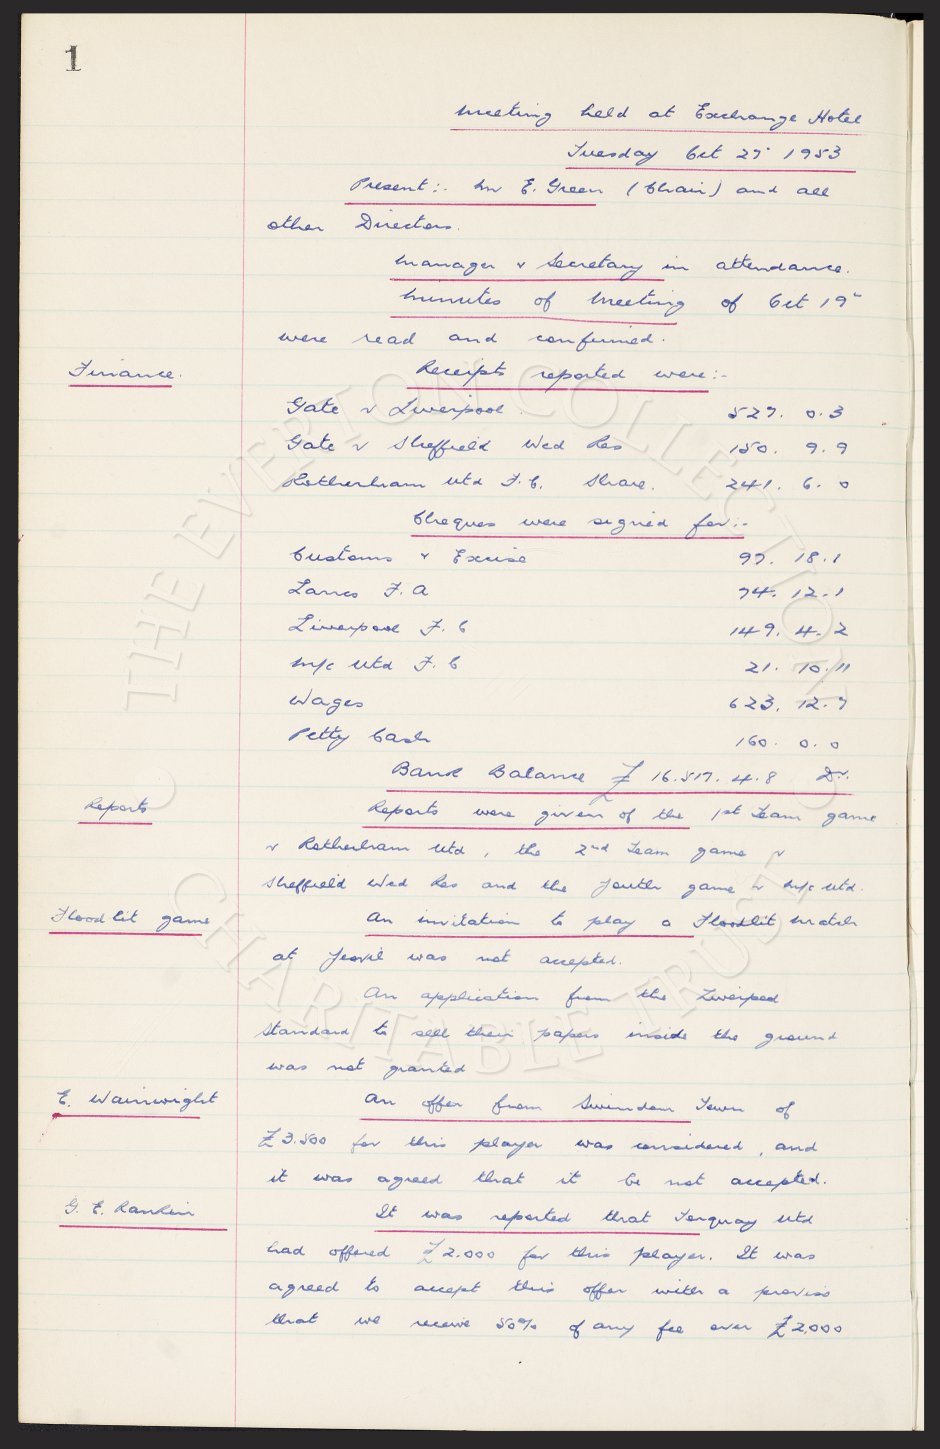 1
Meeting held at Exchange Hotel
Tuesday Oct 27" 1953
Present:- Mr E. Green (Chair) and all
other Directors.
Manager & Secretary in attendance.
Minutes of Meeting of Oct 19"
were read and confirmed.
Finance. Receipts reported were:-
Gate v Liverpool. 527. 0. 3
Gate v Sheffield Wed Res 150. 9. 9
Rotherham Utd F.C. Share. 241. 6. 0
Cheques were signed for:-
Customs & Excise 97. 18. 1
Lancs F. A 74. 12. 1
Liverpool F. C 149. 4. 2
M/c Utd F. C 21. 10. 11
Wages 623. 12. 7
Petty Cash 160. 0. 0
Bank Balance £ 16.517. 4. 8 Dr.
Reports Reports were given of the 1st Team game
v Rotherham Utd, the 2nd Team game v
Sheffield Wed Res and the Youth game v M/c Utd.
Floodlit game An invitation to play a Floodlit match
at Yeovil was not accepted.
An application from the Liverpool
Standard to sell their papers inside the ground
was not granted
E. Wainwright An offer from Swindon Town of
£3.500 for this player was considered, and
it was agreed that it be not accepted.
G. E. Rankin It was reported that Torquay Utd
had offered £2.000 for this player. It was
agreed to accept this offer with a proviso
that we receive 50% of any fee over £2,000
© THE EVERTON COLLECTION
CHARITABLE TRUST